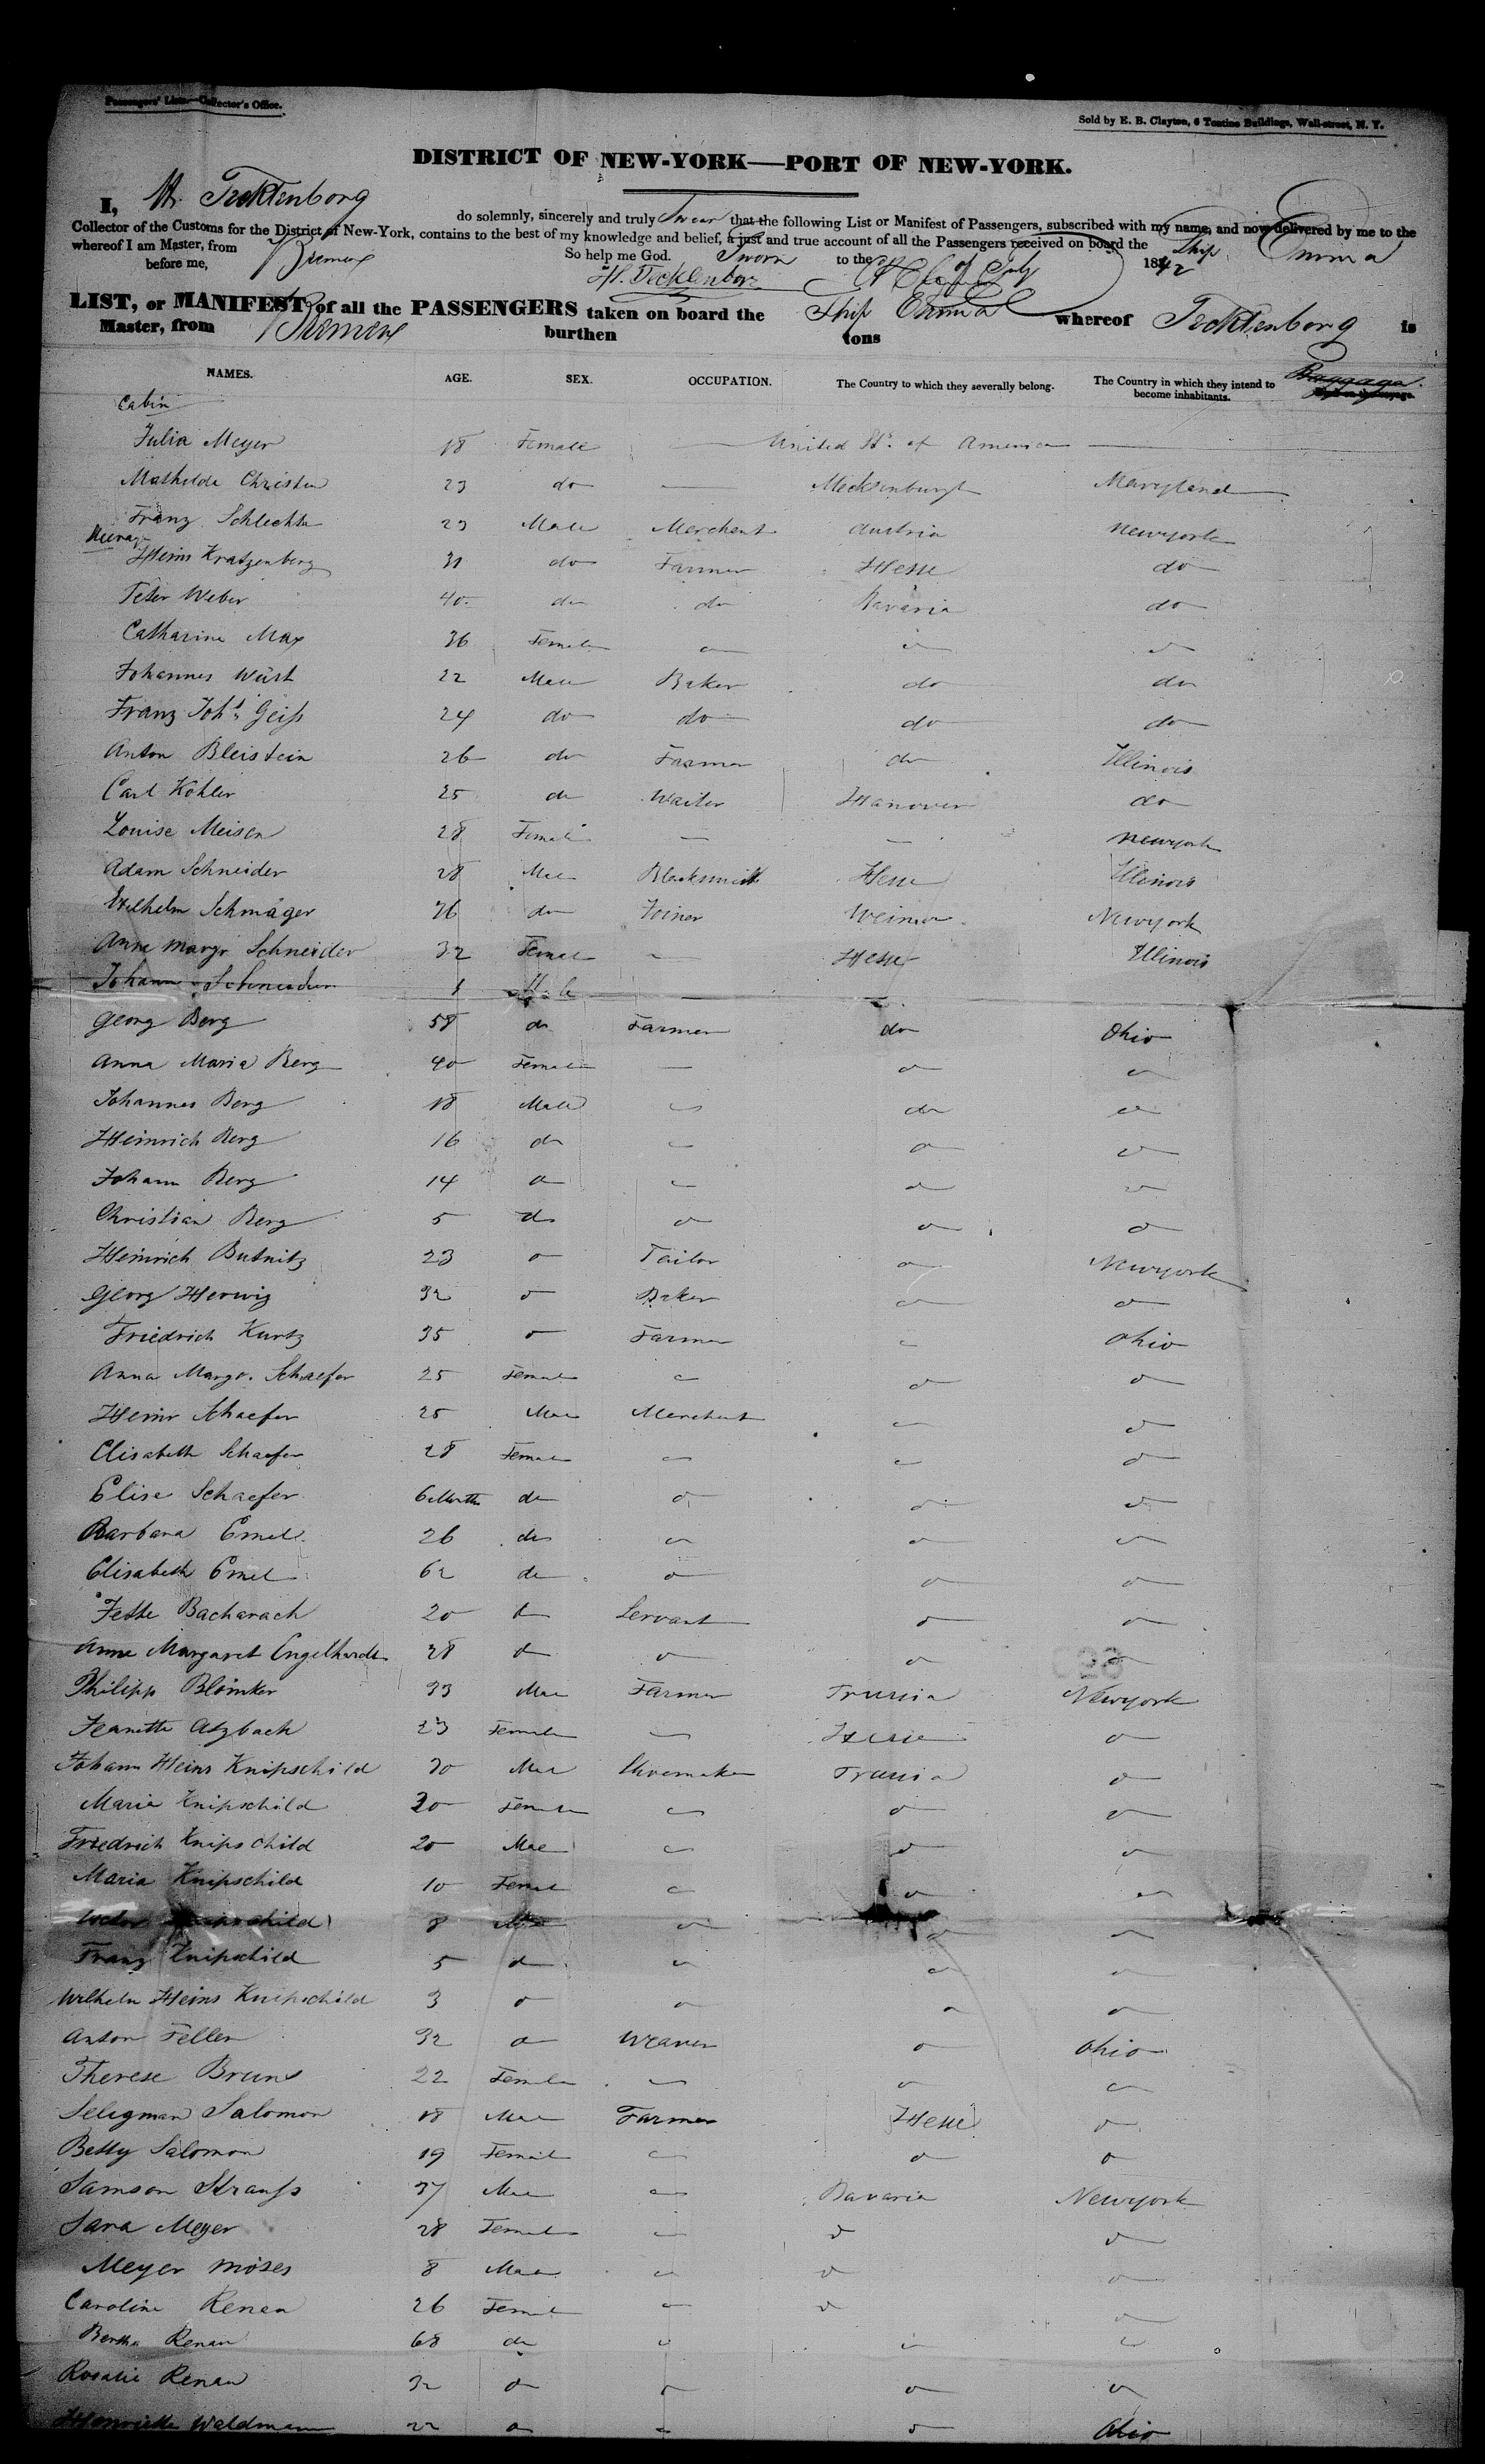 Passengers' Lists—Collector's Office.
Sold by E. B. Clayton, 6 Tontine Buildings, Wall-street, N. Y.
DISTRICT OF NEW-YORK—PORT OF NEW-YORK.
I, H. Tecktenborg do solemnly, sincerely and truly Swear that the following List or Manifest of Passengers, subscribed with my name, and now delivered by me to the
Collector of the Customs for the District of New-York, contains to the best of my knowledge and belief, a just and true account of all the Passengers received on board the Ship Emma
whereof I am Master, from Bremen So help me God. Sworn to the of July 1842
before me, H. Tecklenborg
LIST, or MANIFEST of all the PASSENGERS taken on board the Ship Emma whereof Tecktenborg is
Master, from Bremen burthen tons
NAMES. AGE. SEX. OCCUPATION. The Country to which they severally belong. The Country in which they intend to become inhabitants. Baggage
Cabin
Julia Meyer 18 Female — United Sts. of America —
Mathilde Christen 23 do — Mecklenburgh Maryland
Franz Schlechta 23 Male Merchant Austria Newyork
Steerage
Heinr Kratzenberg 31 do Farmer Hesse do
Peter Weber 40 do do Bavaria do
Catharine Max 36 Female do do do
Johannes Würst 22 Male Baker do do
Franz Johs Geiß 24 do do do do
Anton Bleistein 26 do Farmer do Illinois
Carl Köhler 25 do Waiter Hanover do
Louise Meisen 28 Female — — Newyork
Adam Schneider 28 Male Blacksmith Hesse Illinois
Wilhelm Schmäger 36 do Joiner Weimar Newyork
Anna Margr Schneider 32 Female — Hesse Illinois
Johann Schneider 1 Male — —
Georg Berg 58 do Farmer do Ohio
Anna Maria Berg 40 Female — do do
Johannes Berg 18 Male do do do
Heinrich Berg 16 do do do do
Johann Berg 14 do do do do
Christian Berg 5 do do do do
Heinrich Butnitz 23 do Tailor do Newyork
Georg Herwig 32 do Baker do do
Friedrich Kurtz 35 do Farmer do Ohio
Anna Margr. Schaefer 25 Female do do do
Heinr Schaefer 25 Male Merchant do do
Elisabeth Schaefer 28 Female do do do
Elise Schaefer 6 Month do do do do
Barbara Emel 26 do do do do
Elisabeth Emel 62 do do do do
Jette Bacharach 20 do Servant do do
Anne Margaret Engelhardt 28 do do do do
Philipp Blömker 33 Male Farmer Prussia Newyork
Jeanette Atzbach 23 Female do Hesse do
Johann Heinr Knipschild 30 Male Shoemaker Prussia do
Maria Knipschild 30 Female do do do
Friedrich Knipschild 20 Male do do do
Maria Knipschild 10 Female do do do
Knipschild 8 Male do do do
Franz Knipschild 5 do do do do
Wilhelm Heinr Knipschild 3 do do do do
Anton Feller 32 do Weaver do Ohio
Therese Bruns 22 Female do do do
Seligman Salomon 18 Male Farmer Hesse do
Betty Salomon 19 Female do do do
Samson Strauß 37 Male do Bavaria Newyork
Sara Meyer 28 Female do do do
Meyer Moses 8 Male do do do
Caroline Renau 26 Female do do do
Bertha Renau 68 do do do do
Rosalie Renau 32 do do do do
Henriette Waldmann 22 do do do Ohio